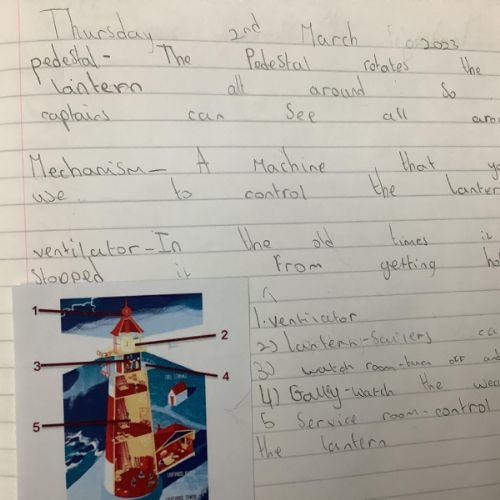 Thursday 2nd March 2023
pedestal- The Pedestal rotates the
lantern all around So
captains can See all
Mechanism- A Machine that
we to control the
ventilator-In the old times it
Stopped it From getting
1. ventilator
2) lantern-Sailers
3) watch room-turn off
4) Galley-watch the
5 Service room-control
the lantern
1
2
3
4
5